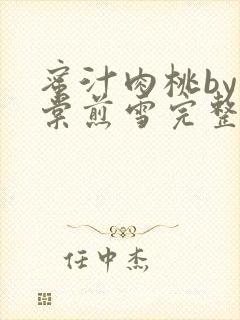 蜜汁肉桃by
棠煎雪完整
任中杰